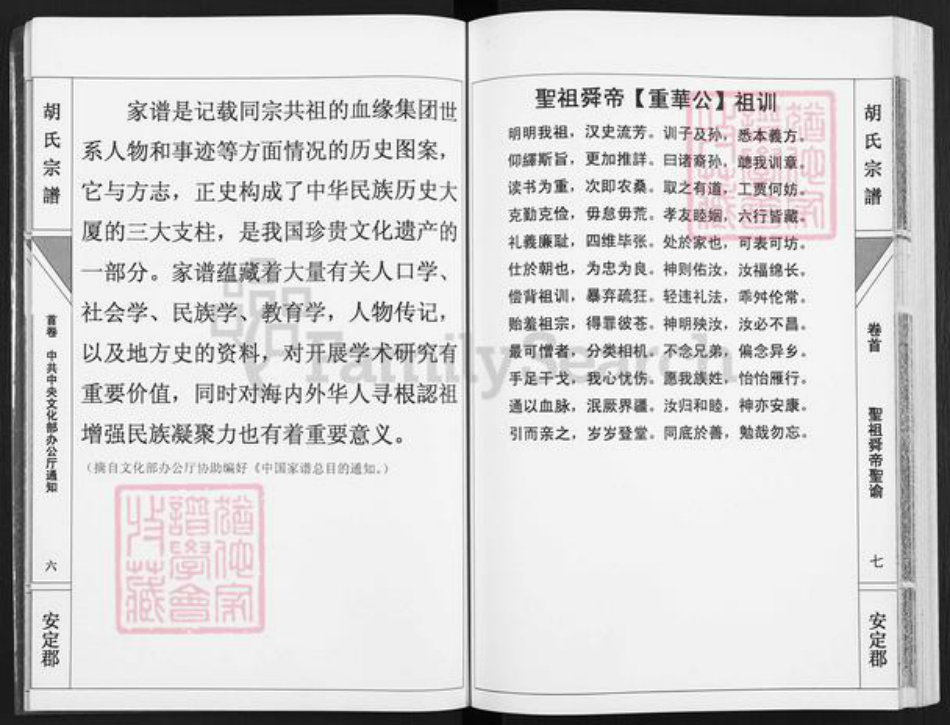 胡氏宗譜
首卷 中共中央文化部办公厅通知
六
安定郡
家谱是记载同宗共祖的血缘集团世
系人物和事迹等方面情况的历史图案，
它与方志，正史构成了中华民族历史大
厦的三大支柱，是我国珍贵文化遗产的
一部分。家谱蕴藏着大量有关人口学、
社会学、民族学、教育学，人物传记，
以及地方史的资料，对开展学术研究有
重要价值，同时对海内外华人寻根認祖
增强民族凝聚力也有着重要意义。
（摘自文化部办公厅协助编好《中国家谱总目的通知。）
猶他家
譜學會
收藏
FamilySearch
聖祖舜帝【重華公】祖训
明明我祖，汉史流芳。训子及孙，悉本義方。
仰繹斯旨，更加推詳。曰诸裔孙，聽我训章。
读书为重，次即农桑。取之有道，工贾何妨。
克勤克俭，毋怠毋荒。孝友睦婣，六行皆藏。
礼義廉耻，四维毕张。处於家也，可表可坊。
仕於朝也，为忠为良。神则佑汝，汝福绵长。
偿背祖训，暴弃疏狂。轻违礼法，乖舛伦常。
贻羞祖宗，得罪彼苍。神明殃汝，汝必不昌。
最可憎者，分类相机。不念兄弟，偏念异乡。
手足干戈，我心忧伤。愿我族姓，怡怡雁行。
通以血脉，泯厥界疆。汝归和睦，神亦安康。
引而亲之，岁岁登堂。同底於善，勉哉勿忘。
猶他家
譜學會
胡氏宗譜
卷首
聖祖舜帝聖谕
七
安定郡